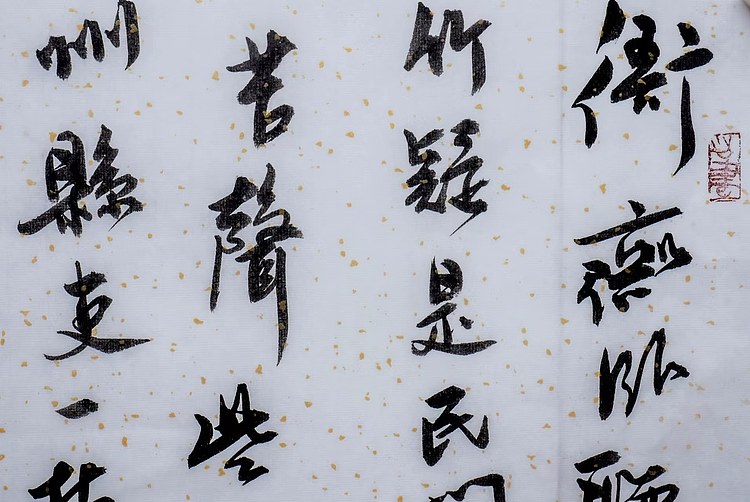 衙齋臥聽
竹疑是民
苦聲些
州縣吏一